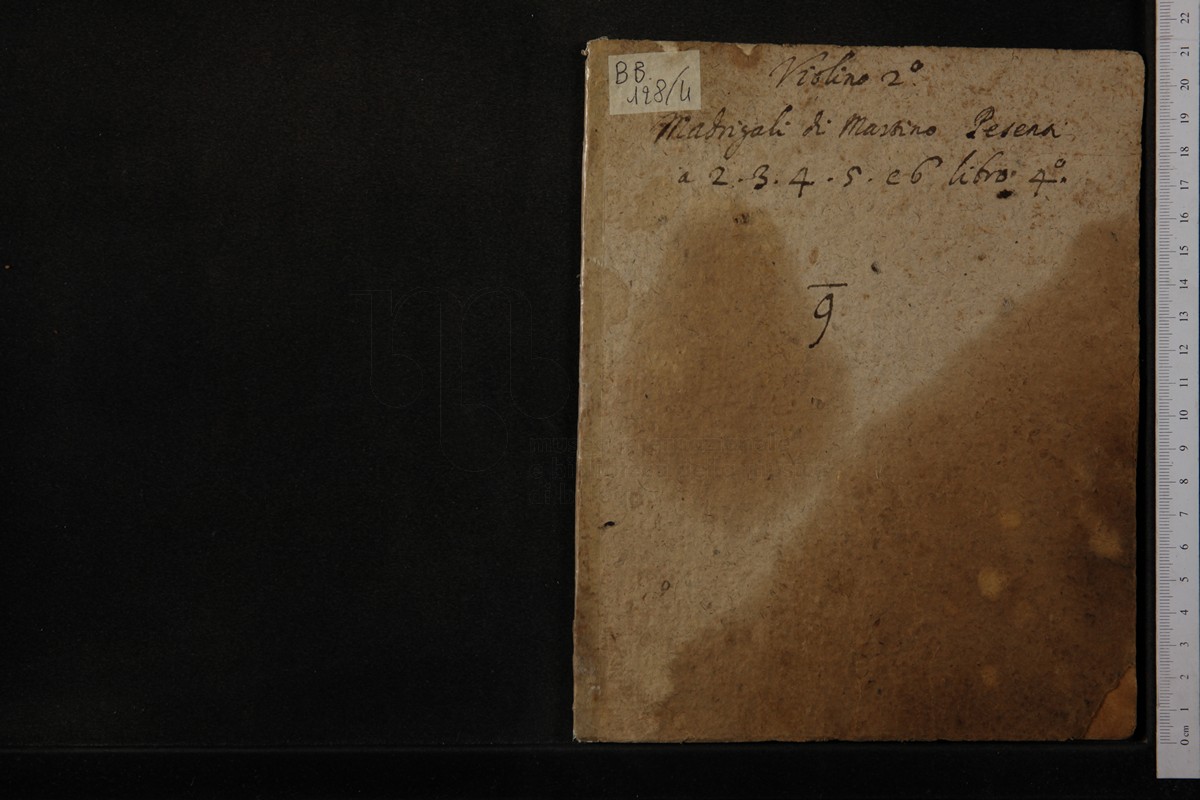 BB.
128/4
Violino 2º
Madrigali di Martino Pesenti
a 2. 3. 4. 5. e 6 libro 4º.
9
22
21
20
19
18
17
16
15
14
13
12
11
10
9
8
7
6
5
4
3
2
1
0 cm